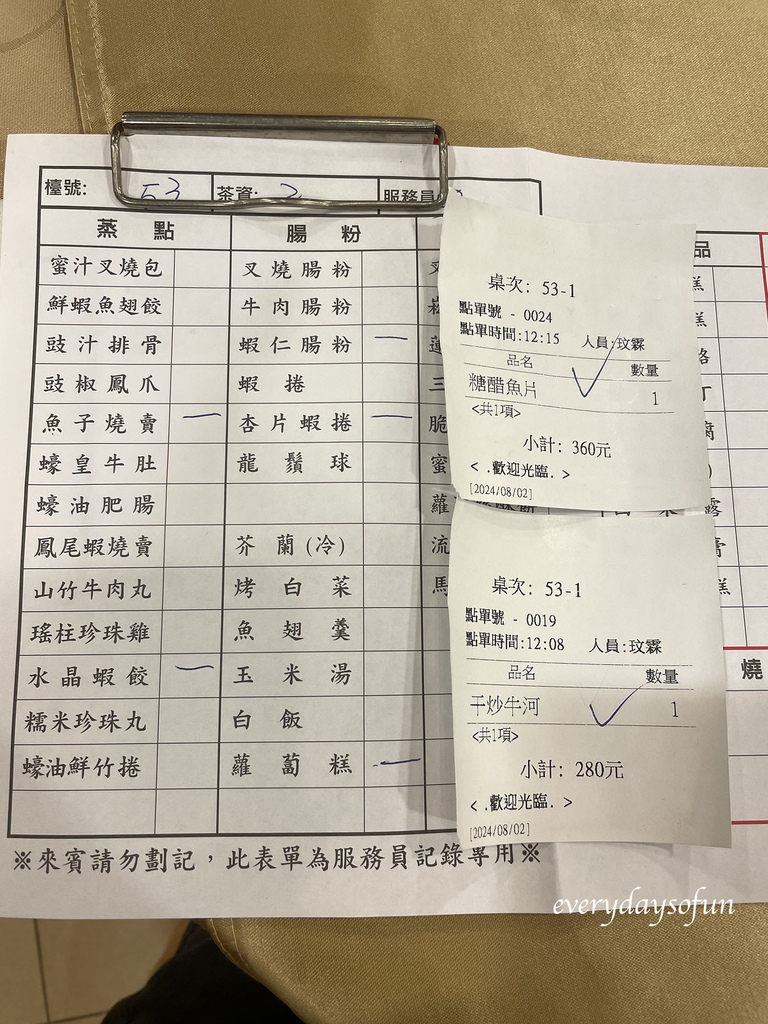 檯號: 53 茶資: 2 服務員
蒸點 腸粉
蜜汁叉燒包 叉燒腸粉 叉
鮮蝦魚翅餃 牛肉腸粉
豉汁排骨 蝦仁腸粉 一
豉椒鳳爪 蝦捲 三
魚子燒賣 一 杏片蝦捲 一 脆
蠔皇牛肚 龍鬚球 蜜
蠔油肥腸 蘿
鳳尾蝦燒賣 芥蘭(冷) 流
山竹牛肉丸 烤白菜 馬
瑤柱珍珠雞 魚翅羹
水晶蝦餃 一 玉米湯
糯米珍珠丸 白飯
蠔油鮮竹捲 蘿蔔糕 一
※來賓請勿劃記，此表單為服務員記錄專用※
品
糕
糕
丁
露
糕
燒
桌次: 53-1
點單號 - 0024
點單時間:12:15 人員:玟霖
品名 數量
糖醋魚片 1
<共1項>
小計: 360元
< .歡迎光臨. >
[2024/08/02]
桌次: 53-1
點單號 - 0019
點單時間:12:08 人員:玟霖
品名 數量
干炒牛河 1
<共1項>
小計: 280元
< .歡迎光臨. >
[2024/08/02]
everydaysofun